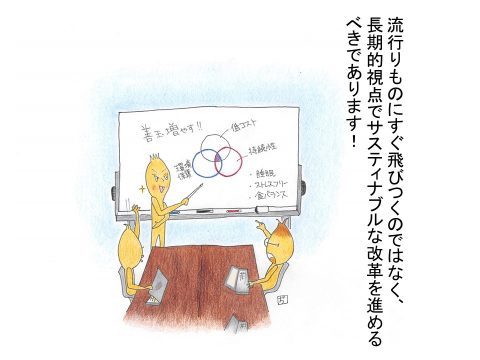 流行りものにすぐ飛びつくのではなく、
長期的視点でサスティナブルな改革を進める
べきであります！
善玉増やす!!
低コスト
持続性
環境
保護
・睡眠
・ストレスフリー
・食バランス